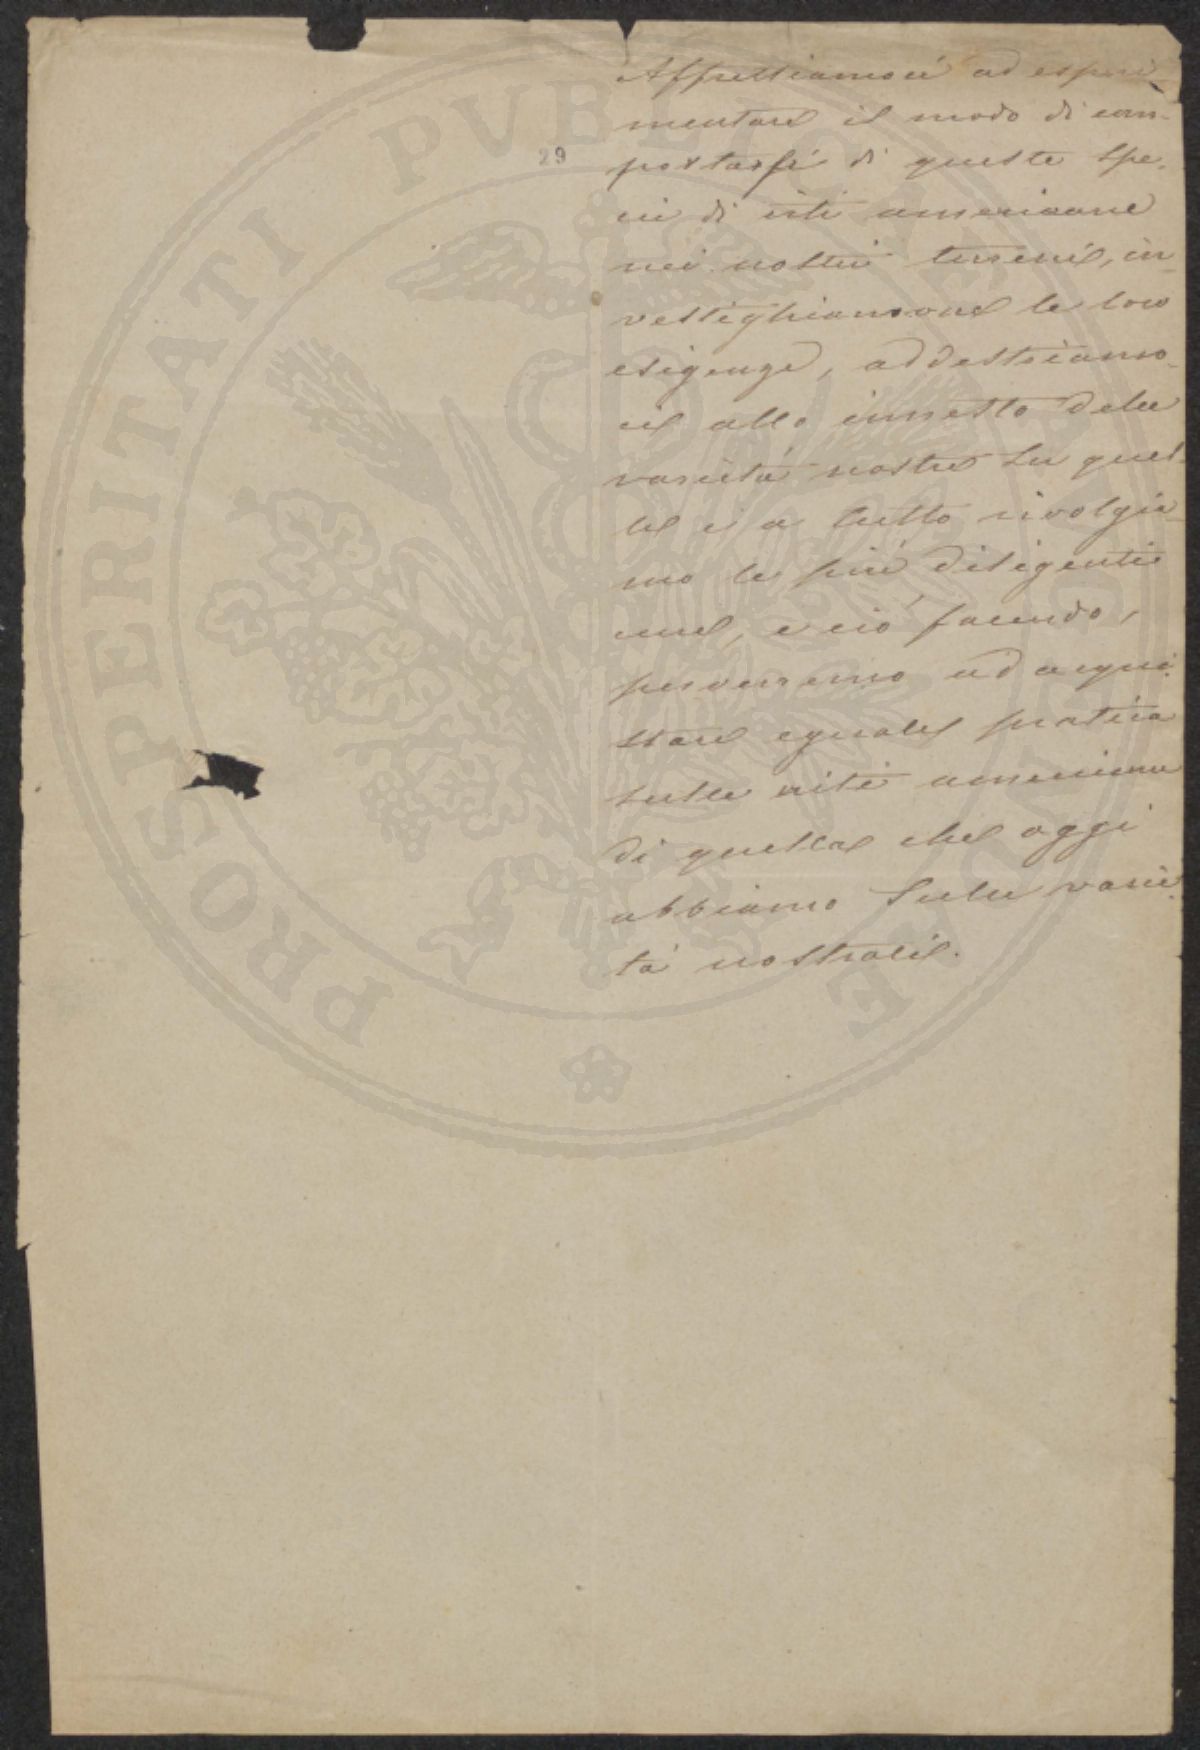 29
Affrettiamoci ad esperi-
mentare il modo di com-
portarsi di queste spe-
cie di viti americane
nei nostri terreni, in-
vestighiamone le loro
esigenze, addestriamo-
ci allo innesto delle
varietà nostre su quel-
le e a tutto rivolgia-
mo le più diligenti
cure, e ciò facendo,
perverremo ad acqui-
stare eguale pratica
sulle viti americane
di quella che oggi
abbiamo sulle varie-
tà nostrali.
PROSPERITATI PVBLICAE